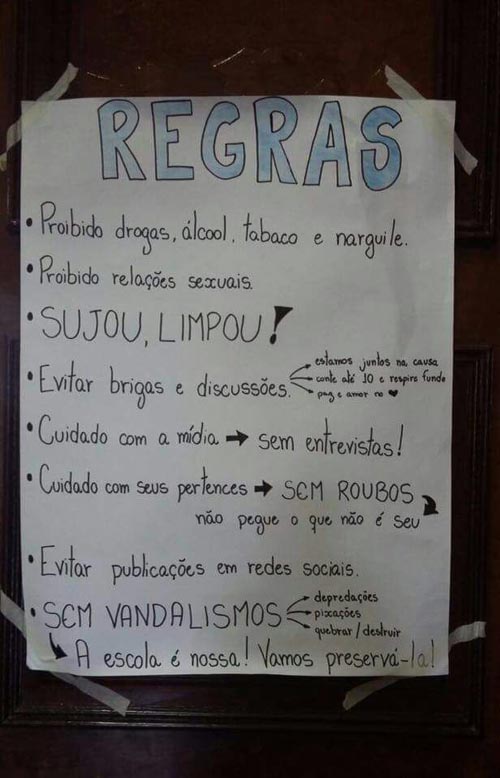 REGRAS
• Proibido drogas, álcool, tabaco e narguile.
• Proibido relações sexuais.
• SUJOU, LIMPOU!
• Evitar brigas e discussões.
estamos juntos na causa
conte até 10 e respire fundo
paz e amor no ♥
• Cuidado com a mídia → sem entrevistas!
• Cuidado com seus pertences → SEM ROUBOS
não pegue o que não é seu
• Evitar publicações em redes sociais.
• SEM VANDALISMOS
depredações
pixações
quebrar/destruir
A escola é nossa! Vamos preservá-la!